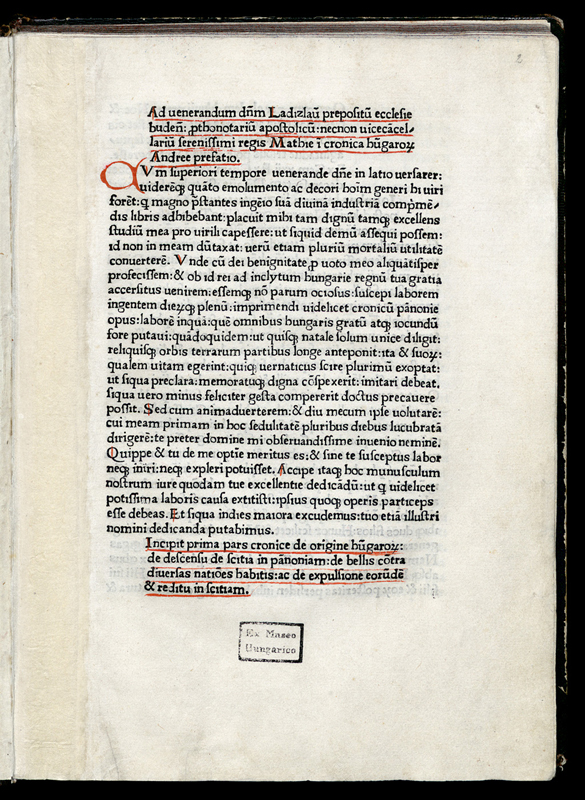 2
Ad uenerandum dñm Ladizlaũ prepositũ ecclesie
budeñ: ꝓthonotariũ apostolicũ: necnon uicecãcel⸗
lariũ serenissimi regis Mathie ĩ cronica hũgaroꝝ
Andree prefatio.
QVm superiori tempore uenerande dñe in latio uersarer:
uideréqꝫ quãto emolumento ac decori hoĩm generi hi uiri
forẽt: q̃ magno p̃stantes ingẽio suã diuinã industriã comp̃mẽ⸗
dis libris adhibebant: placuit mihi tam dignũ tamqꝫ excellens
studiũ mea pro uirili capessere: ut siquid demũ assequi possem:
id non in meam dũtaxat: uerũ etiam pluriũ mortaliũ utilitatẽ
conuerterẽ. Vnde cũ dei benignitate ꝓ uoto meo aliquãtisper
profecissem: & ob id rei ad inclytum hungarie regnũ tua gratia
accersitus uenirem: essemqꝫ nõ parum ociosus: suscepi laborem
ingentem dieꝝqꝫ plenũ: imprimendi uidelicet cronicũ pãnonie
opus: laborẽ inquã: quẽ omnibus hungaris gratũ atqꝫ iocundũ
fore putaui: quãdoquidem: ut quisqꝫ natale solum unice diligit:
reliquisqꝫ orbis terrarum partibus longe anteponit: ita & suoꝝ:
qualem uitam egerint: quiqꝫ uernaticus scire plurimũ exoptat:
ut siqua preclara: memoratuqꝫ digna cõspexerit: imitari debeat,
siqua uero minus feliciter gesta compererit doctus precauere
possit. Sed cum animaduerterem: & diu mecum ipse uolutarẽ:
cui meam primam in hoc sedulitatẽ pluribus diebus lucubratã
dirigerẽ: te preter domine mi obseruandissime inuenio neminẽ.
Quippe & tu de me optĩe meritus es: & sine te susceptus labor
neqꝫ iniri: neqꝫ expleri potuisset. Accipe itaqꝫ hoc munusculum
nostrum iure quodam tue excellentie dedicãdũ: ut q uidelicet
potissima laboris causa extitisti: ipsius quoqꝫ operis particeps
esse debeas. Et siqua indies maiora excudemus: tuo etiã illustri
nomini dedicanda putabimus.
Incipit prima pars cronice de origine hũgaroꝝ:
de descensu de scitia in pãnoniam: de bellis cõtra
diuersas natiões habitis: ac de expulsione eorũdẽ
& reditu in scitiam.
Ex Museo
Hungarico